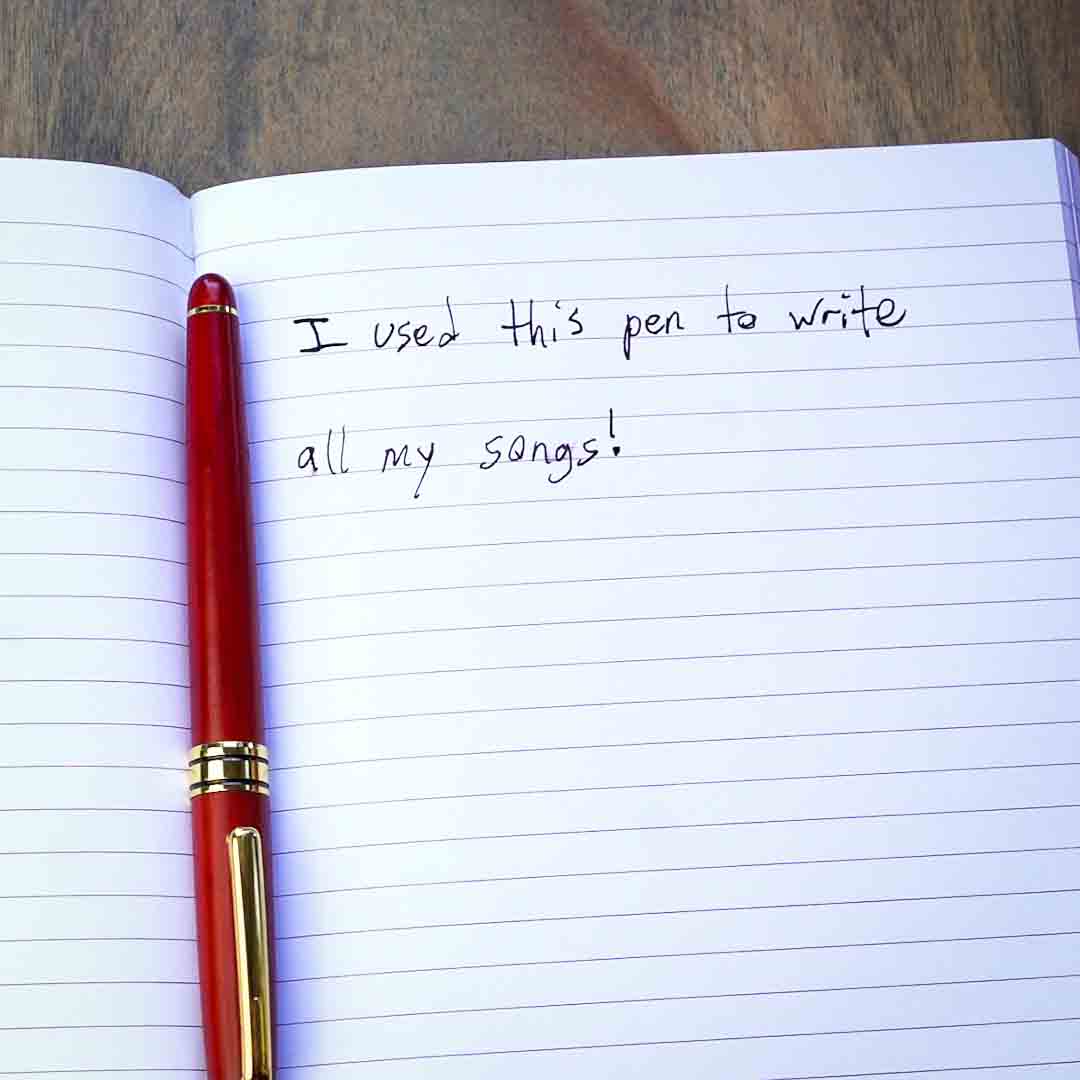 I used this pen to write
all my songs!